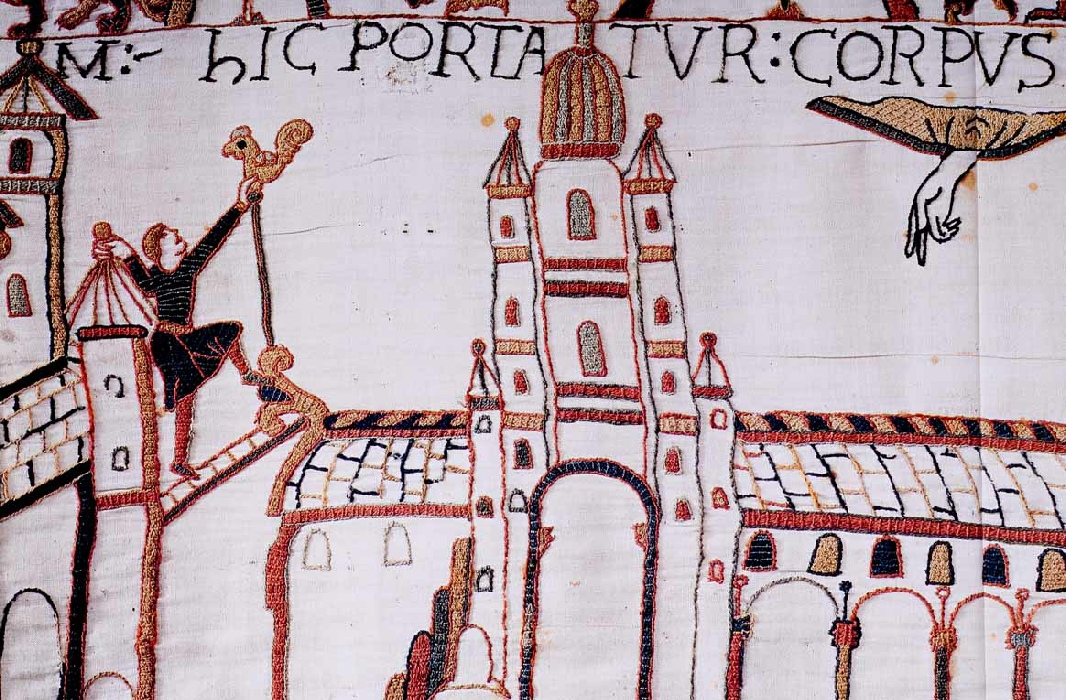 M:- hIC PORTATVR: CORPVS